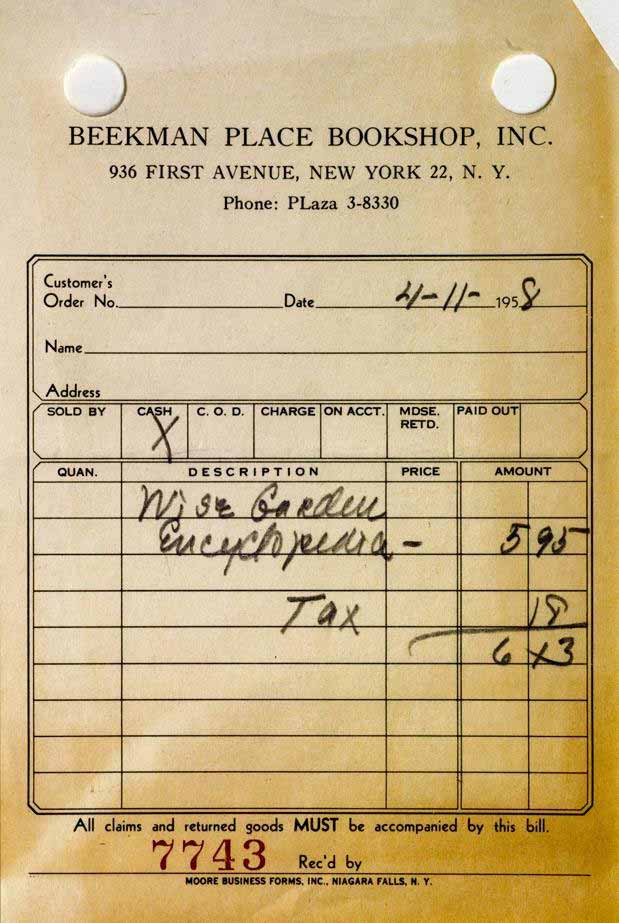 BEEKMAN PLACE BOOKSHOP, INC.
936 FIRST AVENUE, NEW YORK 22, N. Y.
Phone: PLaza 3-8330
Customer's
Order No. Date 4-11- 1958
Name
Address
SOLD BY CASH C. O. D. CHARGE ON ACCT. MDSE. RETD. PAID OUT
X
QUAN. DESCRIPTION PRICE AMOUNT
Wise Garden
Encyclopedia - 5 95
Tax 18
6 x3
All claims and returned goods MUST be accompanied by this bill.
7743 Rec'd by
MOORE BUSINESS FORMS, INC., NIAGARA FALLS, N. Y.